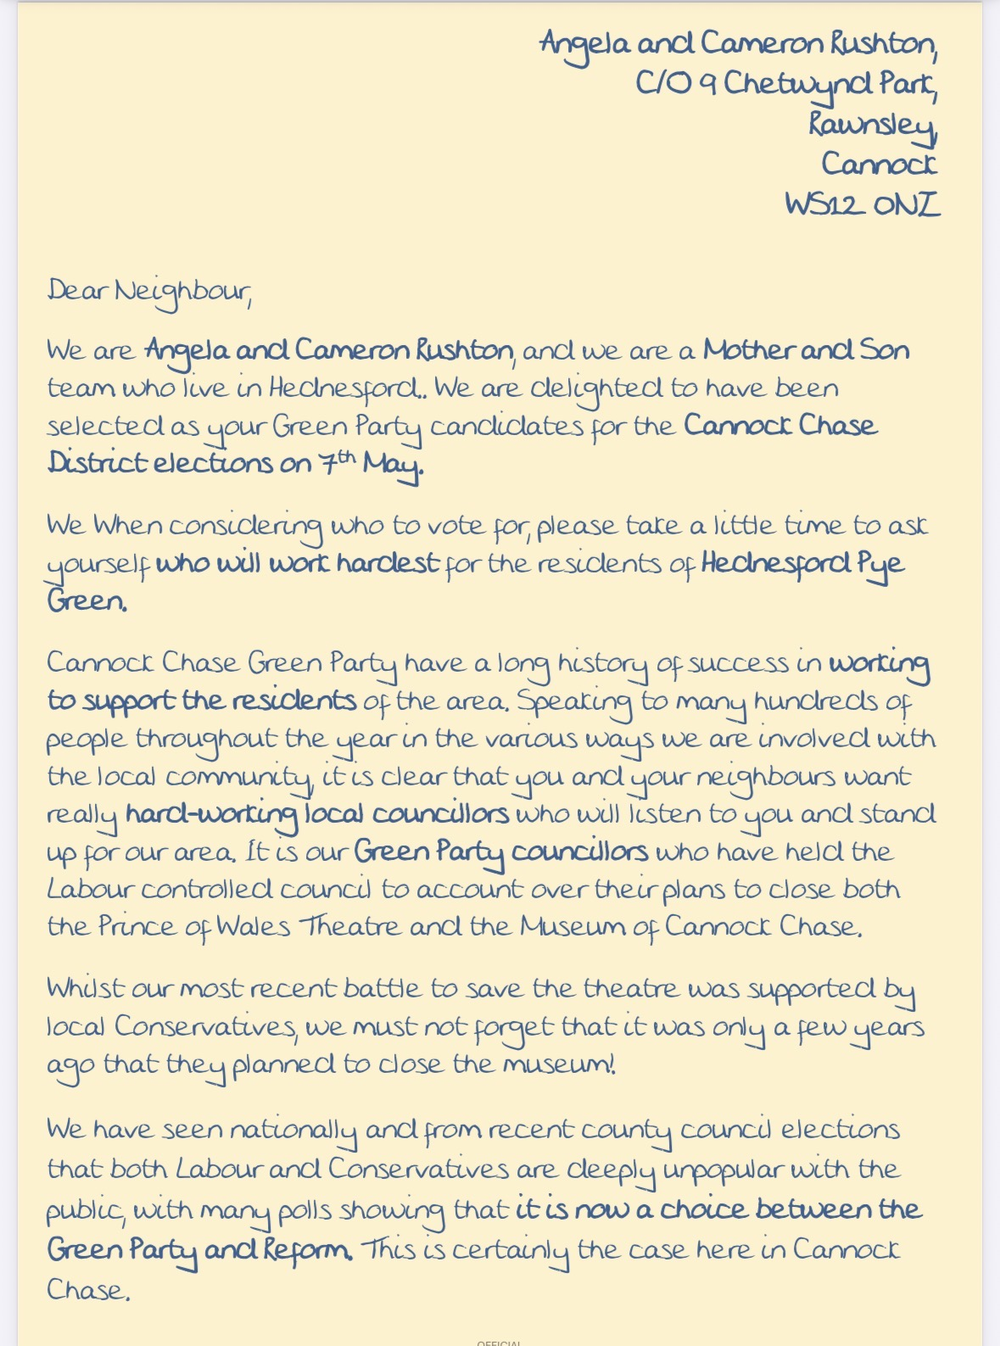 Angela and Cameron Rushton,
C/O 9 Chetwynd Park,
Rawnsley,
Cannock
WS12 0NZ
Dear Neighbour,
We are Angela and Cameron Rushton, and we are a Mother and Son
team who live in Hednesford.. We are delighted to have been
selected as your Green Party candidates for the Cannock Chase
District elections on 7th May.
We When considering who to vote for, please take a little time to ask
yourself who will work hardest for the residents of Hednesford Pye
Green.
Cannock Chase Green Party have a long history of success in working
to support the residents of the area. Speaking to many hundreds of
people throughout the year in the various ways we are involved with
the local community, it is clear that you and your neighbours want
really hard-working local councillors who will listen to you and stand
up for our area. It is our Green Party councillors who have held the
Labour controlled council to account over their plans to close both
the Prince of Wales Theatre and the Museum of Cannock Chase.
Whilst our most recent battle to save the theatre was supported by
local Conservatives, we must not forget that it was only a few years
ago that they planned to close the museum!
We have seen nationally and from recent county council elections
that both Labour and Conservatives are deeply unpopular with the
public, with many polls showing that it is now a choice between the
Green Party and Reform. This is certainly the case here in Cannock
Chase.
OFFICIAL